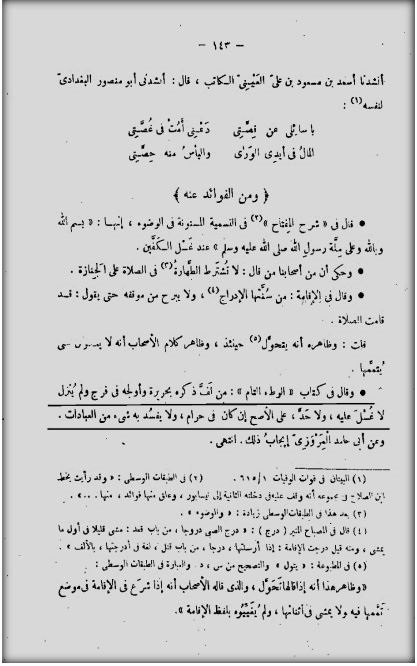 — ١٤٣ —
أنشدنا أسعد بن مسعود بن علىّ العُتْبِىّ الكاتب ، قال : أنشدنى أبو منصور البغدادىّ
لنفسه(١) :
يا سائلى عن قِصَّتِى دَعْنِى أَمُتْ فى غُصَّتِى
المالُ فى أيدِى الوَرَى واليأسُ منه حِصَّتِى
﴿ ومن الفوائد عنه ﴾
• قال فى « شرح المِفتاح »(٢) فى التسمية المسنونة فى الوضوء ، إنها : « بسم الله
وبالله وعلى مِلَّة رسول الله صلى الله عليه وسلم » عند غَسْل الكَفَّين .
• وحكَى أن من أصحابنا من قال : لا تُشترَط الطَّهارةُ(٣) فى الصلاة على الجنازة .
• وقال فى الإقامة : من سُنَّتها الإدراج(٤) ، ولا يبرح من موقفه حتى يقول : قد
قامت الصلاة .
قلت : وظاهره أنه يتحوَّل(٥) حينئذ ، وظاهر كلام الأصحاب أنه لا
يُتِمَّها .
• وقال فى كتاب « الوطء التام » : من لَفَّ ذكره بحريرة وأولجه فى فرج ولم يُنزِل
لا غُسْلَ عليه ، ولا حَدَّ ، على الأصح إن كان فى حرام ، ولا يفسُد به شىء من العبادات .
وعن أبى حامد المَرْوَزِىّ إيجابُ ذلك . انتهى .
(١) البيتان فى فوات الوفيات ١/٦١٥ . (٢) فى الطبقات الوسطى : « وقد رأيت بخط
ابن الصلاح فى مجموعه أنه وقف عليه فى دخلته الثانية إلى نيسابور ، وعلق منها فوائد ، منها . . . » .
(٣) بعد هذا فى الطبقات الوسطى زيادة : « والوضوء » .
(٤) قال فى المصباح المنير ( درج ) : « درج الصبى دروجا ، من باب قعد : مشى قليلا فى أول ما
يمشى ، ومنه قيل درجت الإقامة : إذا أرسلتها ، درجا ، من باب قتل ، لغة فى أدرجتها ، بالألف » .
(٥) فى المطبوعة : « يتول » والتصحيح من س ، د . والعبارة فى الطبقات الوسطى :
«وظاهر هذا أنه إذا قالها تَحَوَّل ، والذى قاله الأصحاب أنه إذا شرع فى الإقامة فى موضع
تَمَّمها فيه ولا يمشى فى أثنائها ، ولم يُقيِّدوه بلفظ الإقامة » .